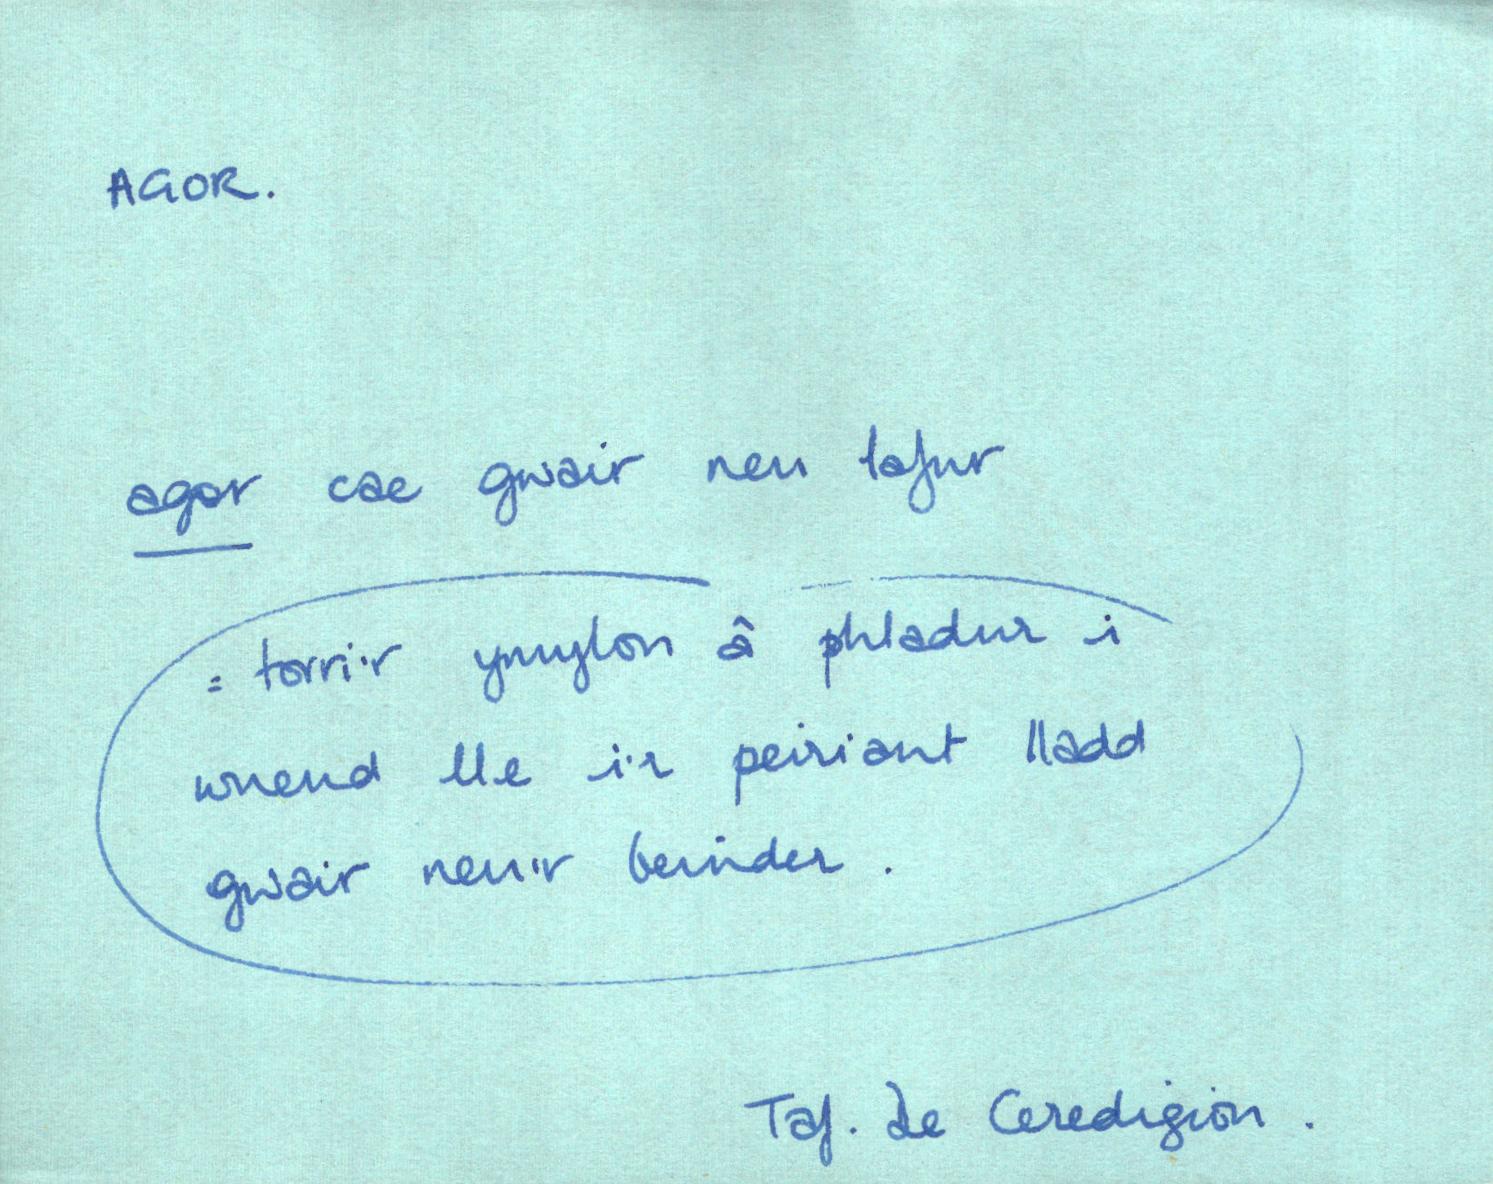 AGOR.
agor cae gwair neu lafur
= torri'r ymylon â phladur i
wneud lle i'r peiriant lladd
gwair neu'r beinder.
Taf. De Ceredigion.